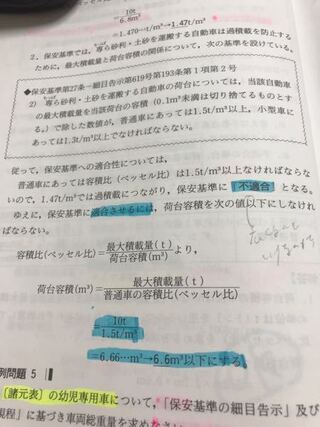 10t
6.8m³
=1.470…t/m³→1.47t/m³
2．保安基準では，専ら砂利・土砂を運搬する自動車は過積載を防止する
ために，最大積載量と荷台容積の関係について，次の基準を設けている。
◆保安基準第27条―細目告示第619号第193条第1項第2号
2) 専ら砂利・土砂を運搬する自動車の荷台については，当該自動車
の最大積載量を当該荷台の容積（0.1m³未満は切り捨てるものとす
る。）で除した数値が，普通車にあっては1.5t/m³以上，小型車に
あっては1.3t/m³以上でなければならない。
従って，保安基準への適合性については，
普通車にあっては容積比（ベッセル比）は1.5t/m³以上なければならな
いので，1.47t/m³では過積載につながり，保安基準に「不適合」となる。
ゆえに，保安基準に適合させるには，荷台容積を次の値以下にしなけれ
ばならない。
容積比(ベッセル比)=最大積載量(t)/荷台容積(m³)より，
荷台容積(m³)=最大積載量(t)/普通車の容積比(ベッセル比)
=10t/1.5t/m³
=6.66…m³→6.6m³以下にする。
例問題 5
〔諸元表〕の幼児専用車について，「保安基準の細目告示」及び
規程」に基づき車両総重量を求め